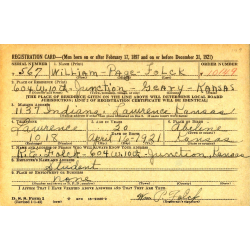 REGISTRATION CARD—(Men born on or after February 17, 1897 and on or before December 31, 1921)
SERIAL NUMBER 1. NAME (Print) ORDER NUMBER
567 William-Page-Folck 10449
2. PLACE OF RESIDENCE (Print)
604 W. 10th - Junction - Geary - Kansas
[THE PLACE OF RESIDENCE GIVEN ON THE LINE ABOVE WILL DETERMINE LOCAL BOARD
JURISDICTION; LINE 2 OF REGISTRATION CERTIFICATE WILL BE IDENTICAL]
3. MAILING ADDRESS
1137 Indiana - Lawrence Kansas
4. TELEPHONE 5. AGE IN YEARS 6. PLACE OF BIRTH
Lawrence 20 Abilene
DATE OF BIRTH
1013 April 9 1921 Kansas
7. NAME AND ADDRESS OF PERSON WHO WILL ALWAYS KNOW YOUR ADDRESS
Folck - 604 W. 10th - Junction, Kansas
8. EMPLOYER'S NAME AND ADDRESS
Student
9. PLACE OF EMPLOYMENT OR BUSINESS
none
I AFFIRM THAT I HAVE VERIFIED ABOVE ANSWERS AND THAT THEY ARE TRUE.
D. S. S. Form 1
Wm P. Folck